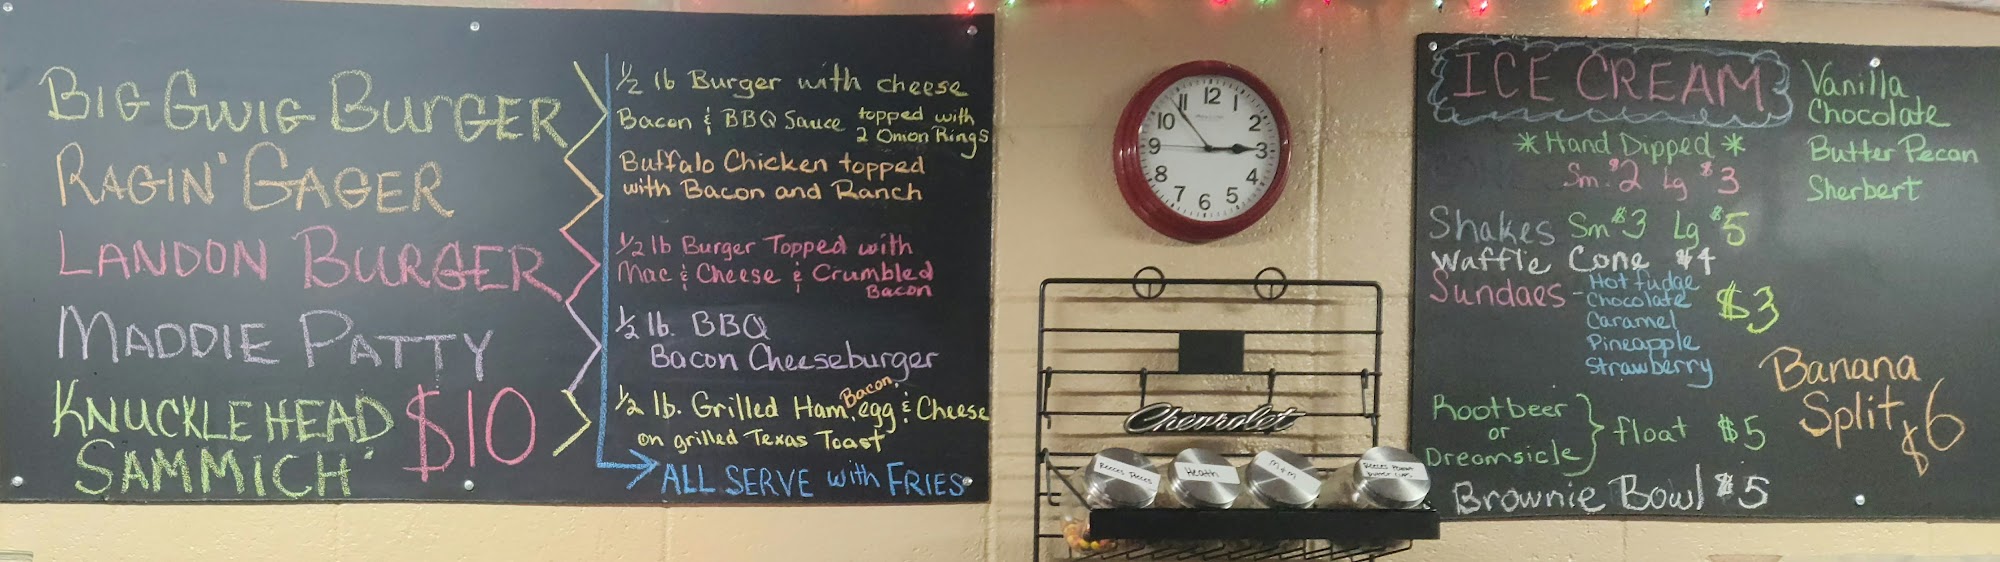 BIG GWIG BURGER
RAGIN' GAGER
LANDON BURGER
MADDIE PATTY
KNUCKLEHEAD $10
SAMMICH'
1/2 lb Burger with cheese
Bacon & BBQ Sauce topped with
2 Onion Rings
Buffalo Chicken topped
with Bacon and Ranch
1/2 lb Burger Topped with
Mac & Cheese & Crumbled
Bacon
1/2 lb. BBQ
Bacon Cheeseburger
1/2 lb. Grilled Ham, Bacon, egg & Cheese
on grilled Texas Toast
ALL SERVE with FRIES
12
1
2
3
4
5
6
7
8
9
10
11
Chevrolet
Reeces Pieces
Heath
M&M
ICE CREAM
*Hand Dipped*
Sm $2 Lg $3
Vanilla
Chocolate
Butter Pecan
Sherbert
Shakes Sm $3 Lg $5
Waffle Cone $4
Sundaes - Hot fudge
Chocolate
Caramel
Pineapple
Strawberry
$3
Banana
Split $6
Rootbeer
or
Dreamsicle
float $5
Brownie Bowl $5